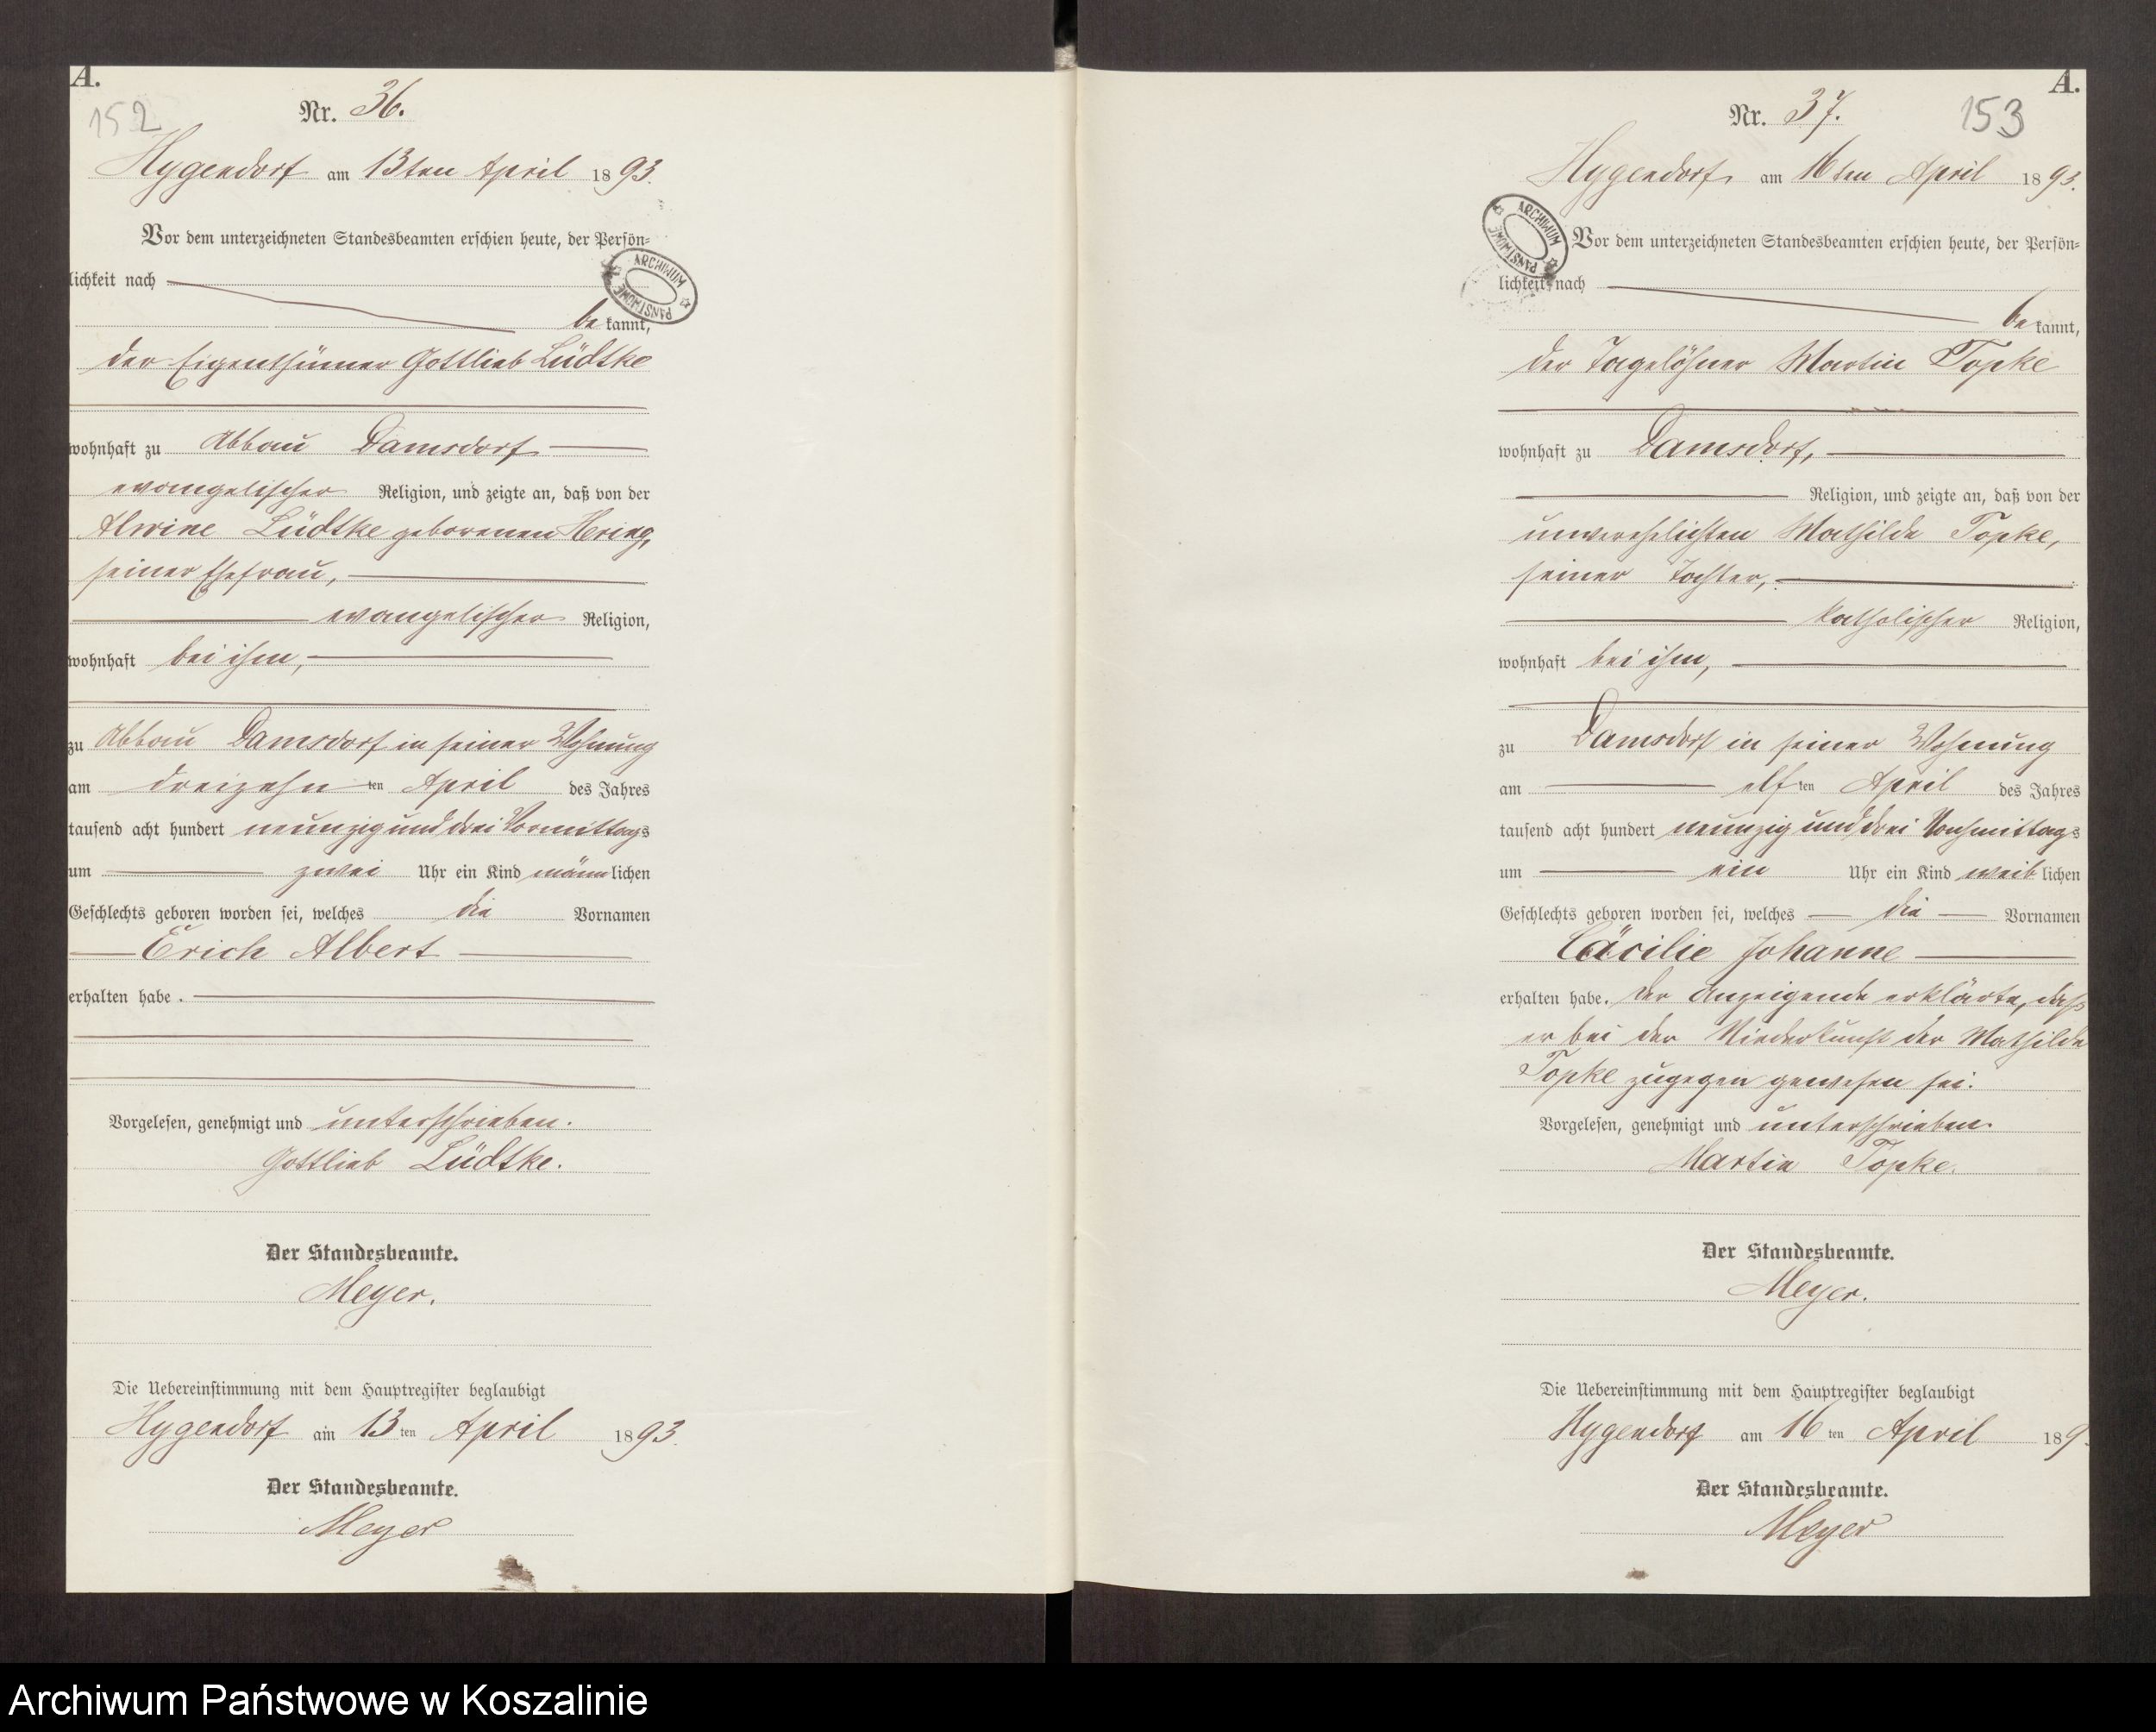 A.
152
Nr. 36.
Hygendorf am 13ten April 1893.
Vor dem unterzeichneten Standesbeamten erschien heute, der Persön-
lichkeit nach
bekannt,
der Eigenthümer Gottlieb Lüdtke
wohnhaft zu Abbau Damsdorf
evangelischer Religion, und zeigte an, daß von der
Alwine Lüdtke geborenen Hering,
seiner Ehefrau,
evangelischer Religion,
wohnhaft bei ihm,
zu Abbau Damsdorf in seiner Wohnung
am dreizehnten April des Jahres
tausend acht hundert neunzig und drei Vormittags
um zwei Uhr ein Kind männlichen
Geschlechts geboren worden sei, welches die Vornamen
Erich Albert
erhalten habe.
Vorgelesen, genehmigt und unterschrieben.
Gottlieb Lüdtke.
Der Standesbeamte.
Meyer.
Die Uebereinstimmung mit dem Hauptregister beglaubigt
Hygendorf am 13ten April 1893.
Der Standesbeamte.
Meyer
ARCHIWUM PAŃSTWOWE
A.
153
Nr. 37.
Hygendorf, am 16ten April 1893.
ARCHIWUM PAŃSTWOWE
Vor dem unterzeichneten Standesbeamten erschien heute, der Persön-
lichkeit nach
bekannt,
der Tagelöhner Martin Topke
wohnhaft zu Damsdorf,
Religion, und zeigte an, daß von der
unverehelichten Mathilde Topke,
seiner Tochter,
katholischer Religion,
wohnhaft bei ihm,
zu Damsdorf in seiner Wohnung
am elften April des Jahres
tausend acht hundert neunzig und drei Nachmittags
um ein Uhr ein Kind weiblichen
Geschlechts geboren worden sei, welches die Vornamen
Cäcilie Johanne
erhalten habe. Der Anzeigende erklärte, daß
er bei der Niederkunft der Mathilde
Topke zugegen gewesen sei.
Vorgelesen, genehmigt und unterschrieben.
Martin Topke.
Der Standesbeamte.
Meyer.
Die Uebereinstimmung mit dem Hauptregister beglaubigt
Hygendorf am 16ten April 189
Der Standesbeamte.
Meyer
Archiwum Państwowe w Koszalinie